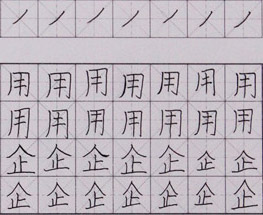 丿丿丿丿丿丿丿
用用用用用用用
用用用用用用用
企企企企企企企
企企企企企企企